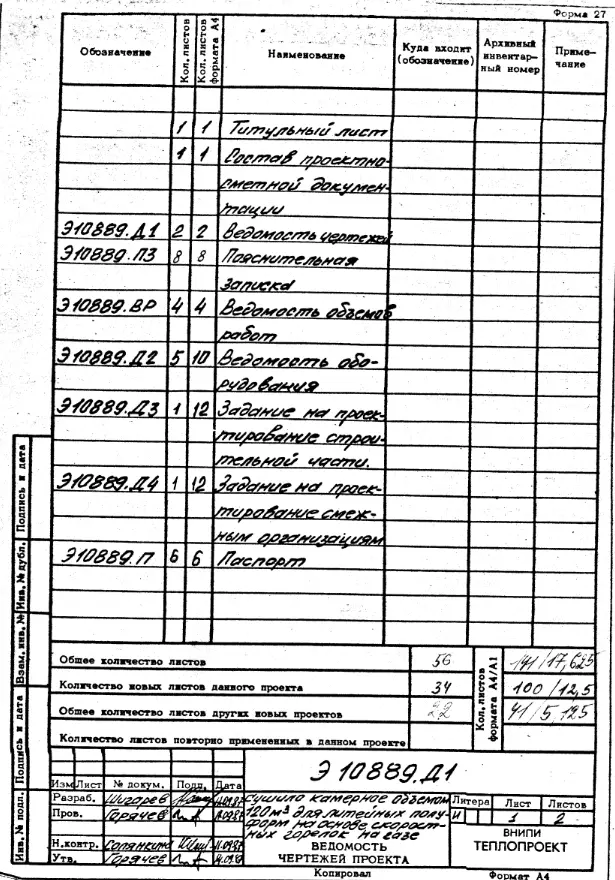 Форма 27
Обозначение Кол. листов Кол. листов формата А4 Наименование Куда входит (обозначение) Архивный инвентарный номер Примечание
1 1 Титульный лист
1 1 Состав проектно-
сметной докумен-
тации
Э10889.Д1 2 2 Ведомость чертежей
Э10889.ПЗ 8 8 Пояснительная
записка
Э10889.ВР 4 4 Ведомость объемов
работ
Э10889.Д2 5 10 Ведомость обо-
рудования
Э10889.Д3 1 12 Задание на проек-
тирование строи-
тельной части.
Э10889.Д4 1 12 Задание на проек-
тирование смеж-
ным организациям
Э10889.П 6 6 Паспорт
Общее количество листов 56 141/17,625
Количество новых листов данного проекта 34 100/12,5
Общее количество листов других новых проектов 22 41/5,125
Количество листов повторно примененных в данном проекте
Кол. листов формата А4/А1
Э 10889.Д1
Изм Лист № докум. Подп. Дата
Разраб. Шигарев
Пров. Горячев
Н.контр.
Утв. Горячев
сушило камерное объемом
120 м³ для литейных полу-
форм на основе скорост-
ных горелок на газе
ВЕДОМОСТЬ
ЧЕРТЕЖЕЙ ПРОЕКТА
Литера Лист Листов
И 1 2
ВНИПИ
ТЕПЛОПРОЕКТ
Копировал Формат А4
Инв. № подл. Подпись и дата Взам. инв. № Инв. № дубл. Подпись и дата